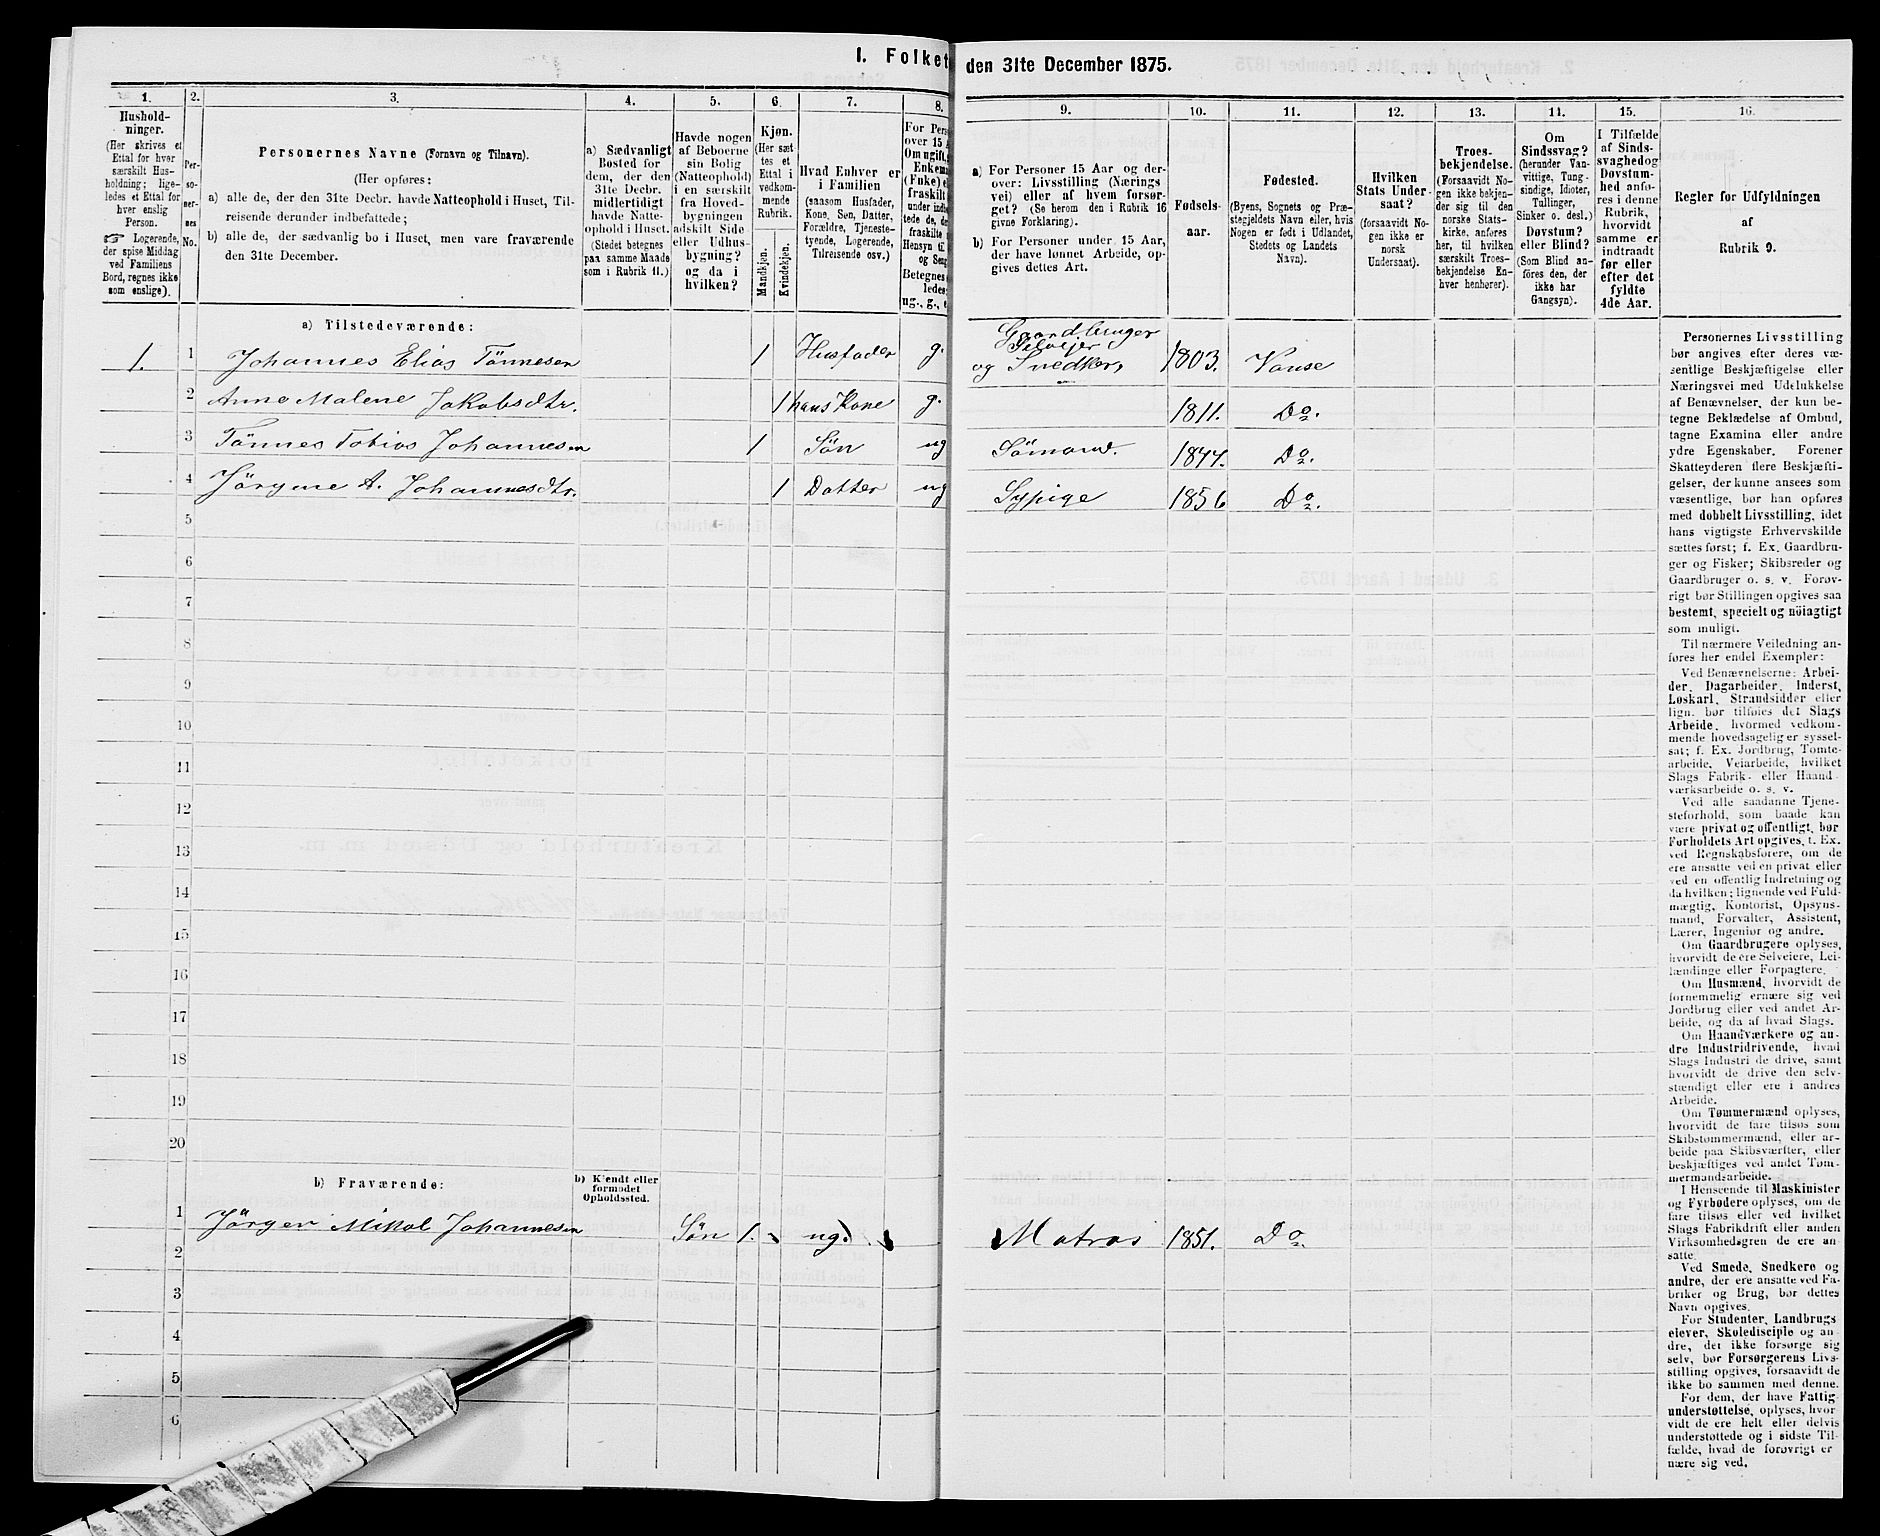 I. Folket
den 31te December 1875.
1.
Hushold-
ninger.
(Her skrives et
Ettal for hver
særskilt Hus-
holdning; lige-
ledes et Ettal for
hver enslig
Person.
☞ Logerende,
der spise Middag
ved Familiens
Bord, regnes ikke
som enslige).
2.
Per-
so-
ner-
nes
No.
3.
Personernes Navne (Fornavn og Tilnavn).
(Her opføres:
a) alle de, der den 31te Decbr. havde Natteophold i Huset, Til-
reisende derunder indbefattede;
b) alle de, der sædvanlig bo i Huset, men vare fraværende
den 31te December.
4.
a) Sædvanligt
Bosted for
dem, der den
31te Decbr.
midlertidigt
havde Natte-
ophold i Huset.
(Stedet betegnes
paa samme Maade
som i Rubrik 11.)
5.
Havde nogen
af Beboerne
sin Bolig
(Natteophold)
i en særskilt
fra Hoved-
bygningen
adskilt Side
eller Udhus-
bygning?
og da i
hvilken?
6.
Kjøn.
(Her sæt-
tes et
Ettal i
vedkom-
mende
Rubrik.
Mandkjøn.
Kvindekjøn.
7.
Hvad Enhver er
i Familien
(saasom Husfader,
Kone, Søn, Datter,
Forældre, Tjeneste-
tyende, Logerende,
Tilreisende osv.)
8.
For Pers
over 15 A
Om ugift,
Enkema
(Enke) e
fraskilt
under indbe
tede de, de
fraskilte
Hensyn til
og Seng
Betegnes
ledes:
ug., g., e
9.
a) For Personer 15 Aar og der-
over: Livsstilling (Nærings
vei) eller af hvem forsør-
get? (Se herom den i Rubrik 16
givne Forklaring).
b) For Personer under 15 Aar,
der have lønnet Arbeide, op-
gives dettes Art.
10.
Fødsels-
aar.
11.
Fødested.
(Byens, Sognets og Præ-
stegjeldets Navn eller, hvis
Nogen er født i Udlandet,
Stedets og Landets
Navn).
12.
Hvilken
Stats Under-
saat?
(forsaavidt No-
gen ikke er
norsk
Undersaat).
13.
Troes-
bekjendelse.
(Forsaavidt No-
gen ikke bekjen-
der sig til den
norske Stats-
kirke, anføres
her, til hvilken
særskilt Troes-
bekjendelse En-
hver henhører).
14.
Om
Sindssvag?
(herunder Van-
vittige, Tung-
sindige, Idioter,
Tullinger,
Sinker o. desl.)
Døvstum?
eller Blind?
(Som Blind an-
føres den, der
ikke har
Gangsyn).
15.
I Tilfælde
af Sinds-
svaghed og
Døvstum-
hed anfø-
res i denne
Rubrik,
hvorvidt
samme er
indtraadt
før eller
efter det
fyldte
4de Aar.
16.
Regler for Udfyldningen
af
Rubrik 9.
a) Tilstedeværende:
1. 1 Johannes Elias Tönnesen 1 Husfader g. Gaardbruger Selvejer og Snedker, 1803. Vanse
2 Anne Malene Jakobsdtr. 1 hans Kone g. 1811. Do.
3 Tönnes Tobias Johannesen 1 Sön ug Sömand. 1844. Do.
4 Jörgine A. Johannesdtr. 1 Datter ug Sypige 1856 Do.
5
6
7
8
9
10
11
12
13
14
15
16
17
18
19
20
b) Fraværende:
b) Kjendt eller
formodet
Opholdssted.
1 Jörgen Mikal Johannesen Sön 1. ug. Matros 1851. Do.
2
3
4
5
6
Personernes Livsstilling
bør angives efter deres væ-
sentlige Beskjæftigelse eller
Næringsvei med Udelukkelse
af Benævnelser, der kun be-
tegne Beklædelse af Ombud,
tagne Examina eller andre
ydre Egenskaber. Forener
Skatteyderen flere Beskjæfti-
gelser, der kunne ansees som
væsentlige, bør han opføres
med dobbelt Livsstilling, idet
hans vigtigste Erhvervskilde
sættes først; f. Ex. Gaardbru-
ger og Fisker; Skibsreder og
Gaardbruger o. s. v. Forøv-
rigt bør Stillingen opgives saa
bestemt, specielt og nöiagtigt
som muligt.
Til nærmere Veiledning an-
føres her endel Exempler:
Ved Benævnelserne: Arbei-
der, Dagarbeider, Inderst,
Løskarl, Strandsidder eller
lign. bør tilføies det Slags
Arbeide, hvormed vedkom-
mende hovedsagelig er syssel-
sat; f. Ex. Jordbrug, Tomte-
arbeide, Veiarbeide, hvilket
Slags Fabrik- eller Haand
værksarbeide o. s. v.
Ved alle saadanne Tjene-
steforhold, som baade kan
være privat og offentligt, bør
Forholdets Art opgives, t. Ex.
ved Regnskabsførere, om de
ere ansatte ved en privat eller
ved en offentlig Indretning og
da hvilken; lignende ved Fuld-
mægtig, Kontorist, Opsyns-
mand, Forvalter, Assistent,
Lærer, Ingeniør og andre.
Om Gaardbrugere oplyses,
hvorvidt de ere Selveiere, Lei-
lændinge eller Forpagtere.
Om Husmænd, hvorvidt de
fornemmelig ernære sig ved
Jordbrug eller ved andet Ar-
beide, og da af hvad Slags.
Om Haandværkere og an-
dre Industridrivende, hvad
Slags Industri de drive, samt
hvorvidt de drive den selv-
stændigt eller ere i andres
Arbeide.
Om Tømmermænd oplyses,
hvorvidt de fare tilsøs som
Skibstømmermænd, eller ar-
beide paa Skibsværfter, eller
beskjæftiges ved andet Tøm-
mermandsarbeide.
I Henseende til Maskinister
og Fyrbødere oplyses, om de
fare tilsøs eller ved hvilket
Slags Fabrikdrift eller anden
Virksomhedsgren de ere an-
satte.
Ved Smede, Snedkere og
andre, der ere ansatte ved Fa-
briker og Brug, bør dettes
Navn opgives.
For Studenter, Landbrugs
elever, Skoledisciple og an-
dre, det ikke forsørge sig
selv, bør Forsørgerens Livs-
stilling opgives, forsaavidt de
ikke bo sammen med denne.
For dem, der have Fattig-
understøttelse, oplyses, hvor-
vidt de ere helt eller delvis
understøttede og i sidste Til-
fælde, hvad de forøvrigt er
nære sig ved.